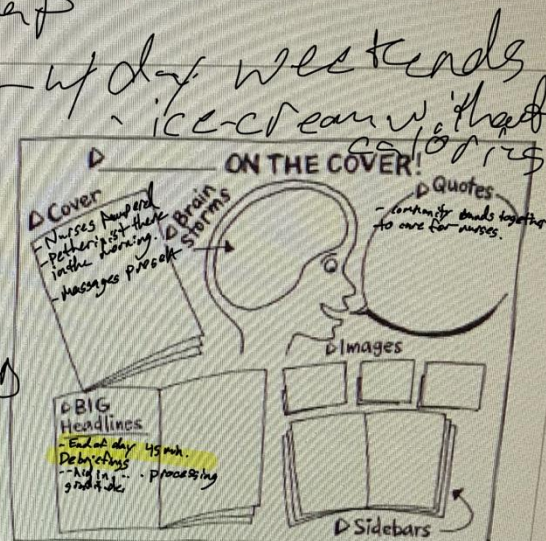 ap
- 4 day weekends
- ice-cream without
calories
▷ ________ ON THE COVER!
▷ Cover
- Nurses pampered
there
in the morning.
- Massages present
▷ Brain
storms
▷ Quotes
- community bands together
to care for nurses.
▷ Images
▷ BIG
Headlines
- End of day 45 min.
Debriefings
processing
▷ Sidebars